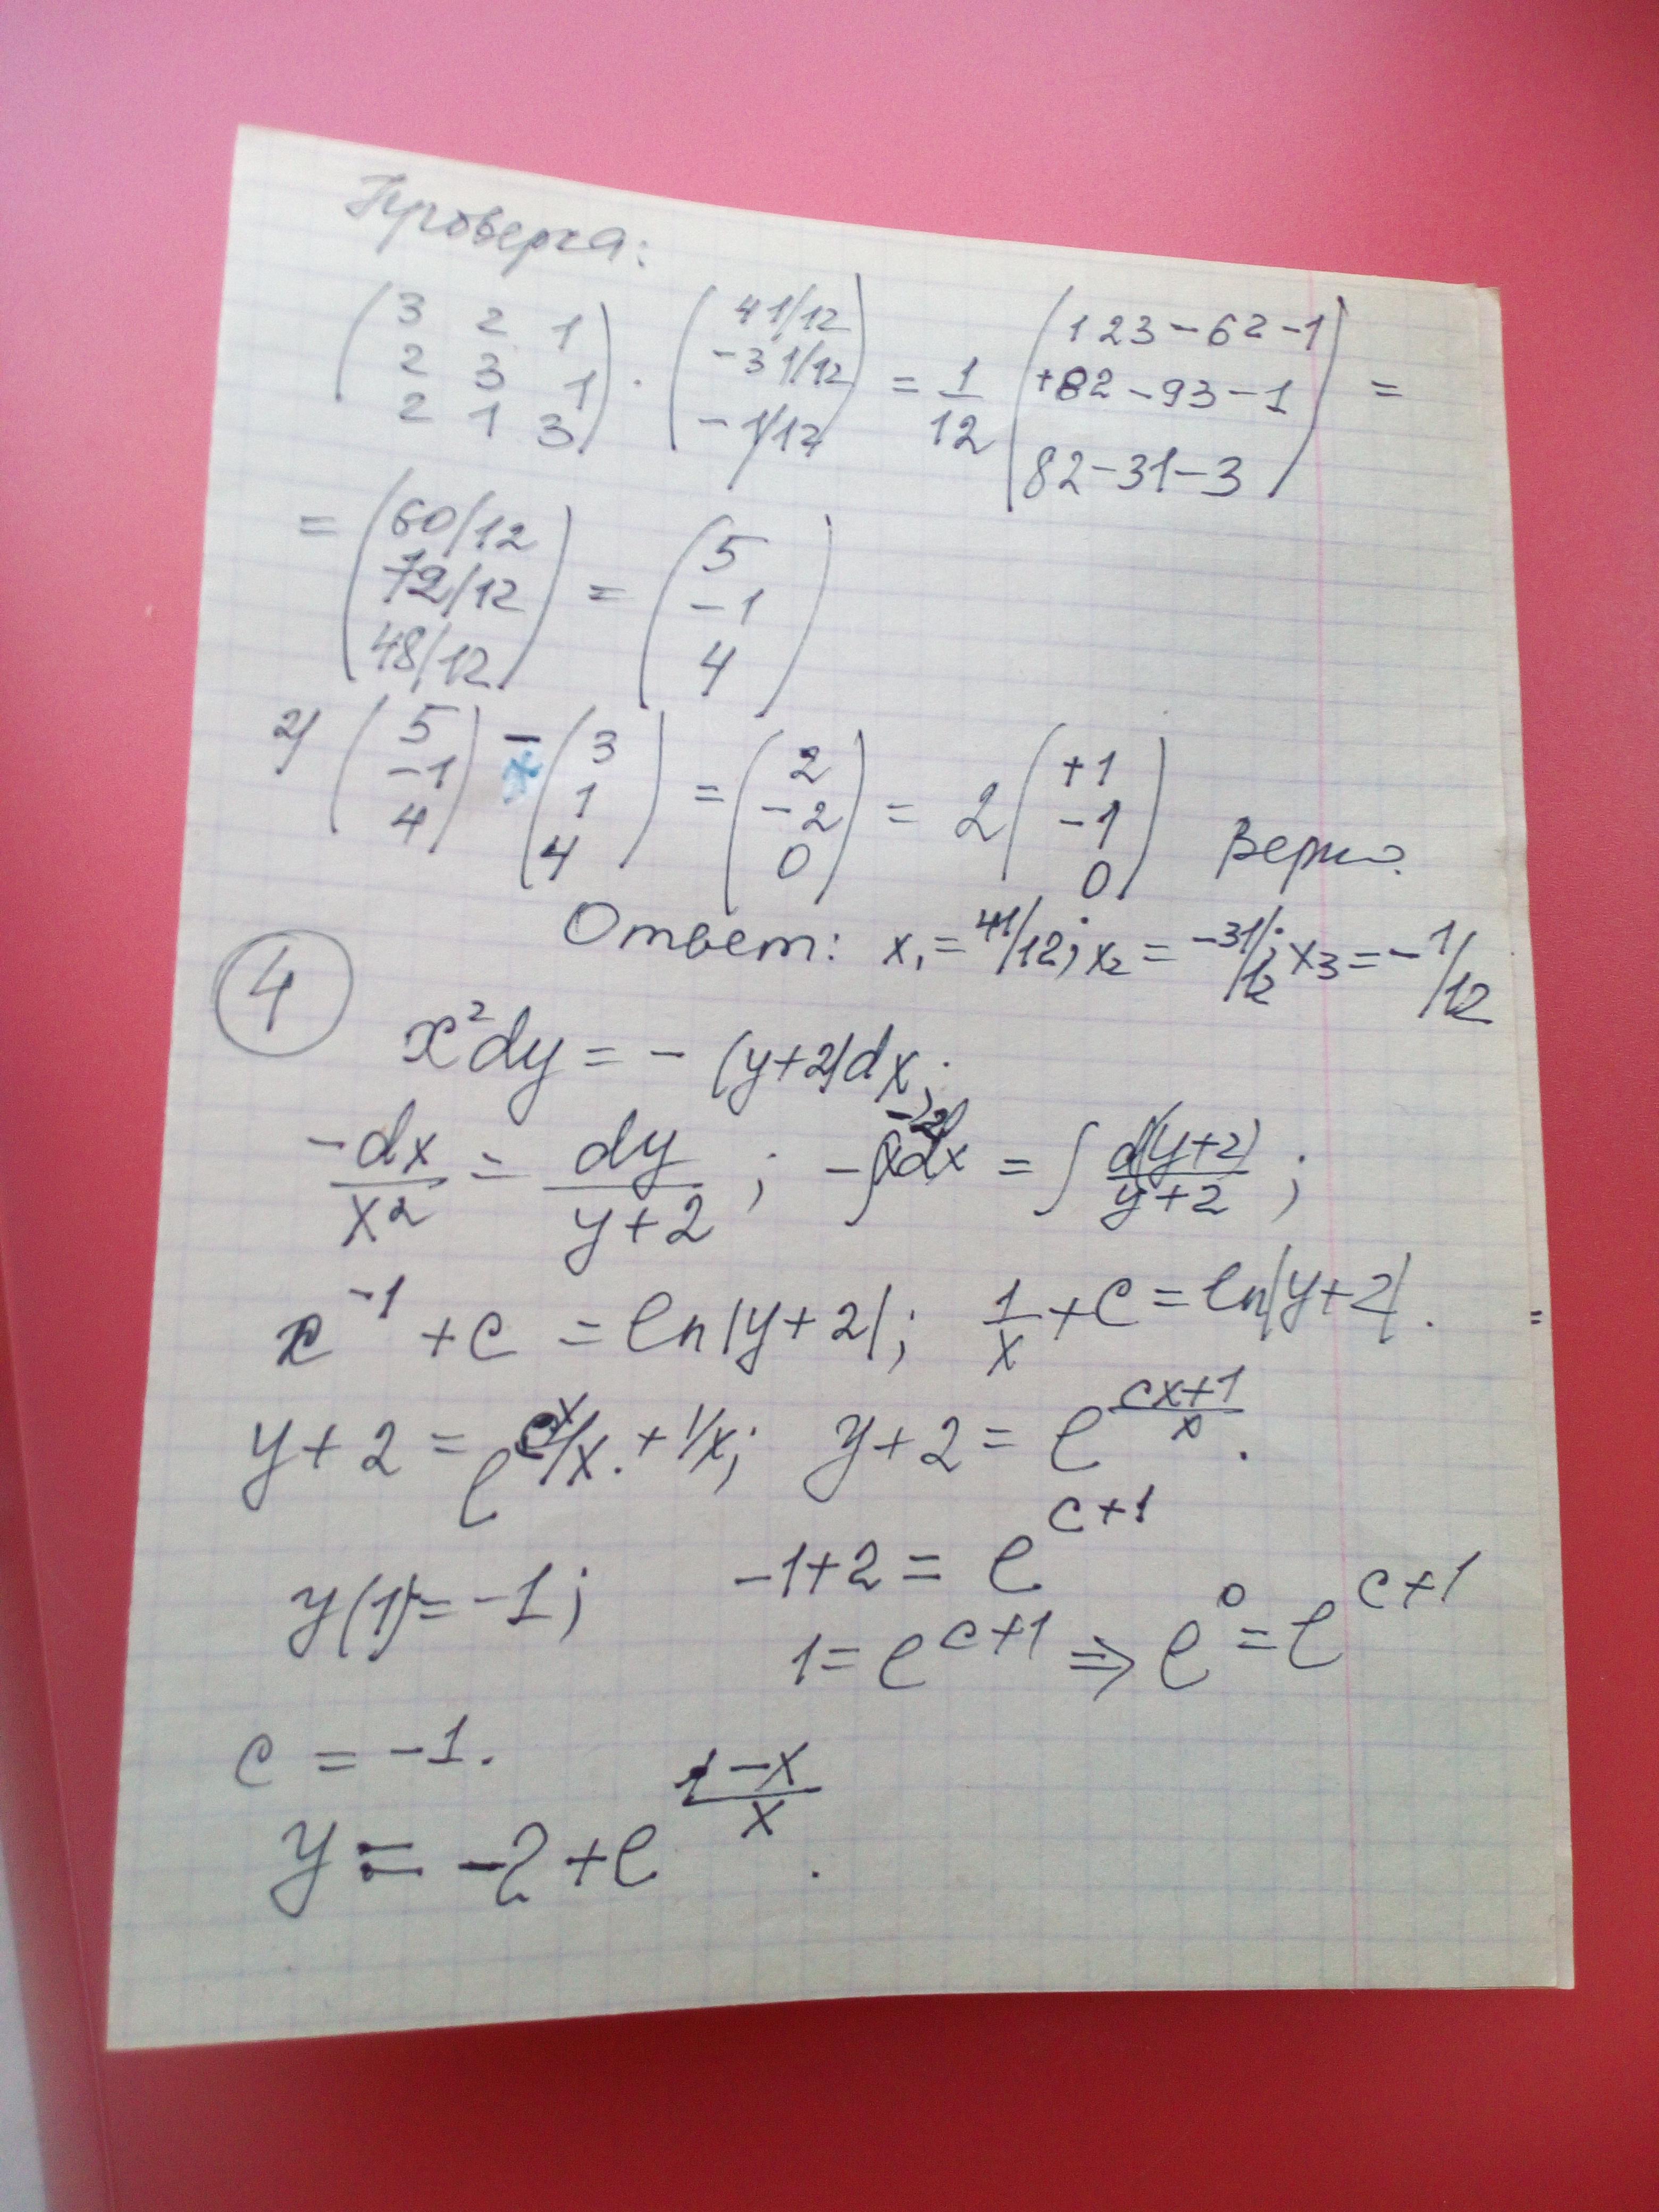 Проверка:
( 3 2 1 ) ( 41/12 ) ( 123-62-1 )
( 2 3 1 ) · ( -31/12 ) = 1/12 ( +82-93-1 ) =
( 2 1 3 ) ( -1/12 ) ( 82-31-3 )
= ( 60/12 ) ( 5 )
( 72/12 ) = ( -1 )
( 48/12 ) ( 4 )
2) ( 5 ) ( 3 ) ( 2 ) ( +1 )
( -1 ) - ( 1 ) = ( -2 ) = 2 ( -1 ) Верно.
( 4 ) ( 4 ) ( 0 ) ( 0 )
Ответ: x₁ = 41/12; x₂ = -31/12; x₃ = -1/12
4
x²dy = - (y+2)dx;
-dx/x² = dy/(y+2); -∫x⁻²dx = ∫ d(y+2)/(y+2);
x⁻¹ + c = ln|y+2|; 1/x + c = ln|y+2|.
y+2 = e^(cx/x + 1/x); y+2 = e^((cx+1)/x).
y(1) = -1; -1+2 = e^(c+1)
1 = e^(c+1) ⇒ e⁰ = e^(c+1)
c = -1.
y = -2 + e^((1-x)/x).